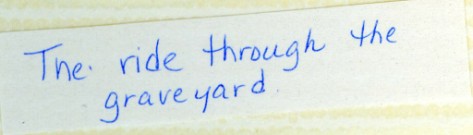 The ride through the
graveyard.